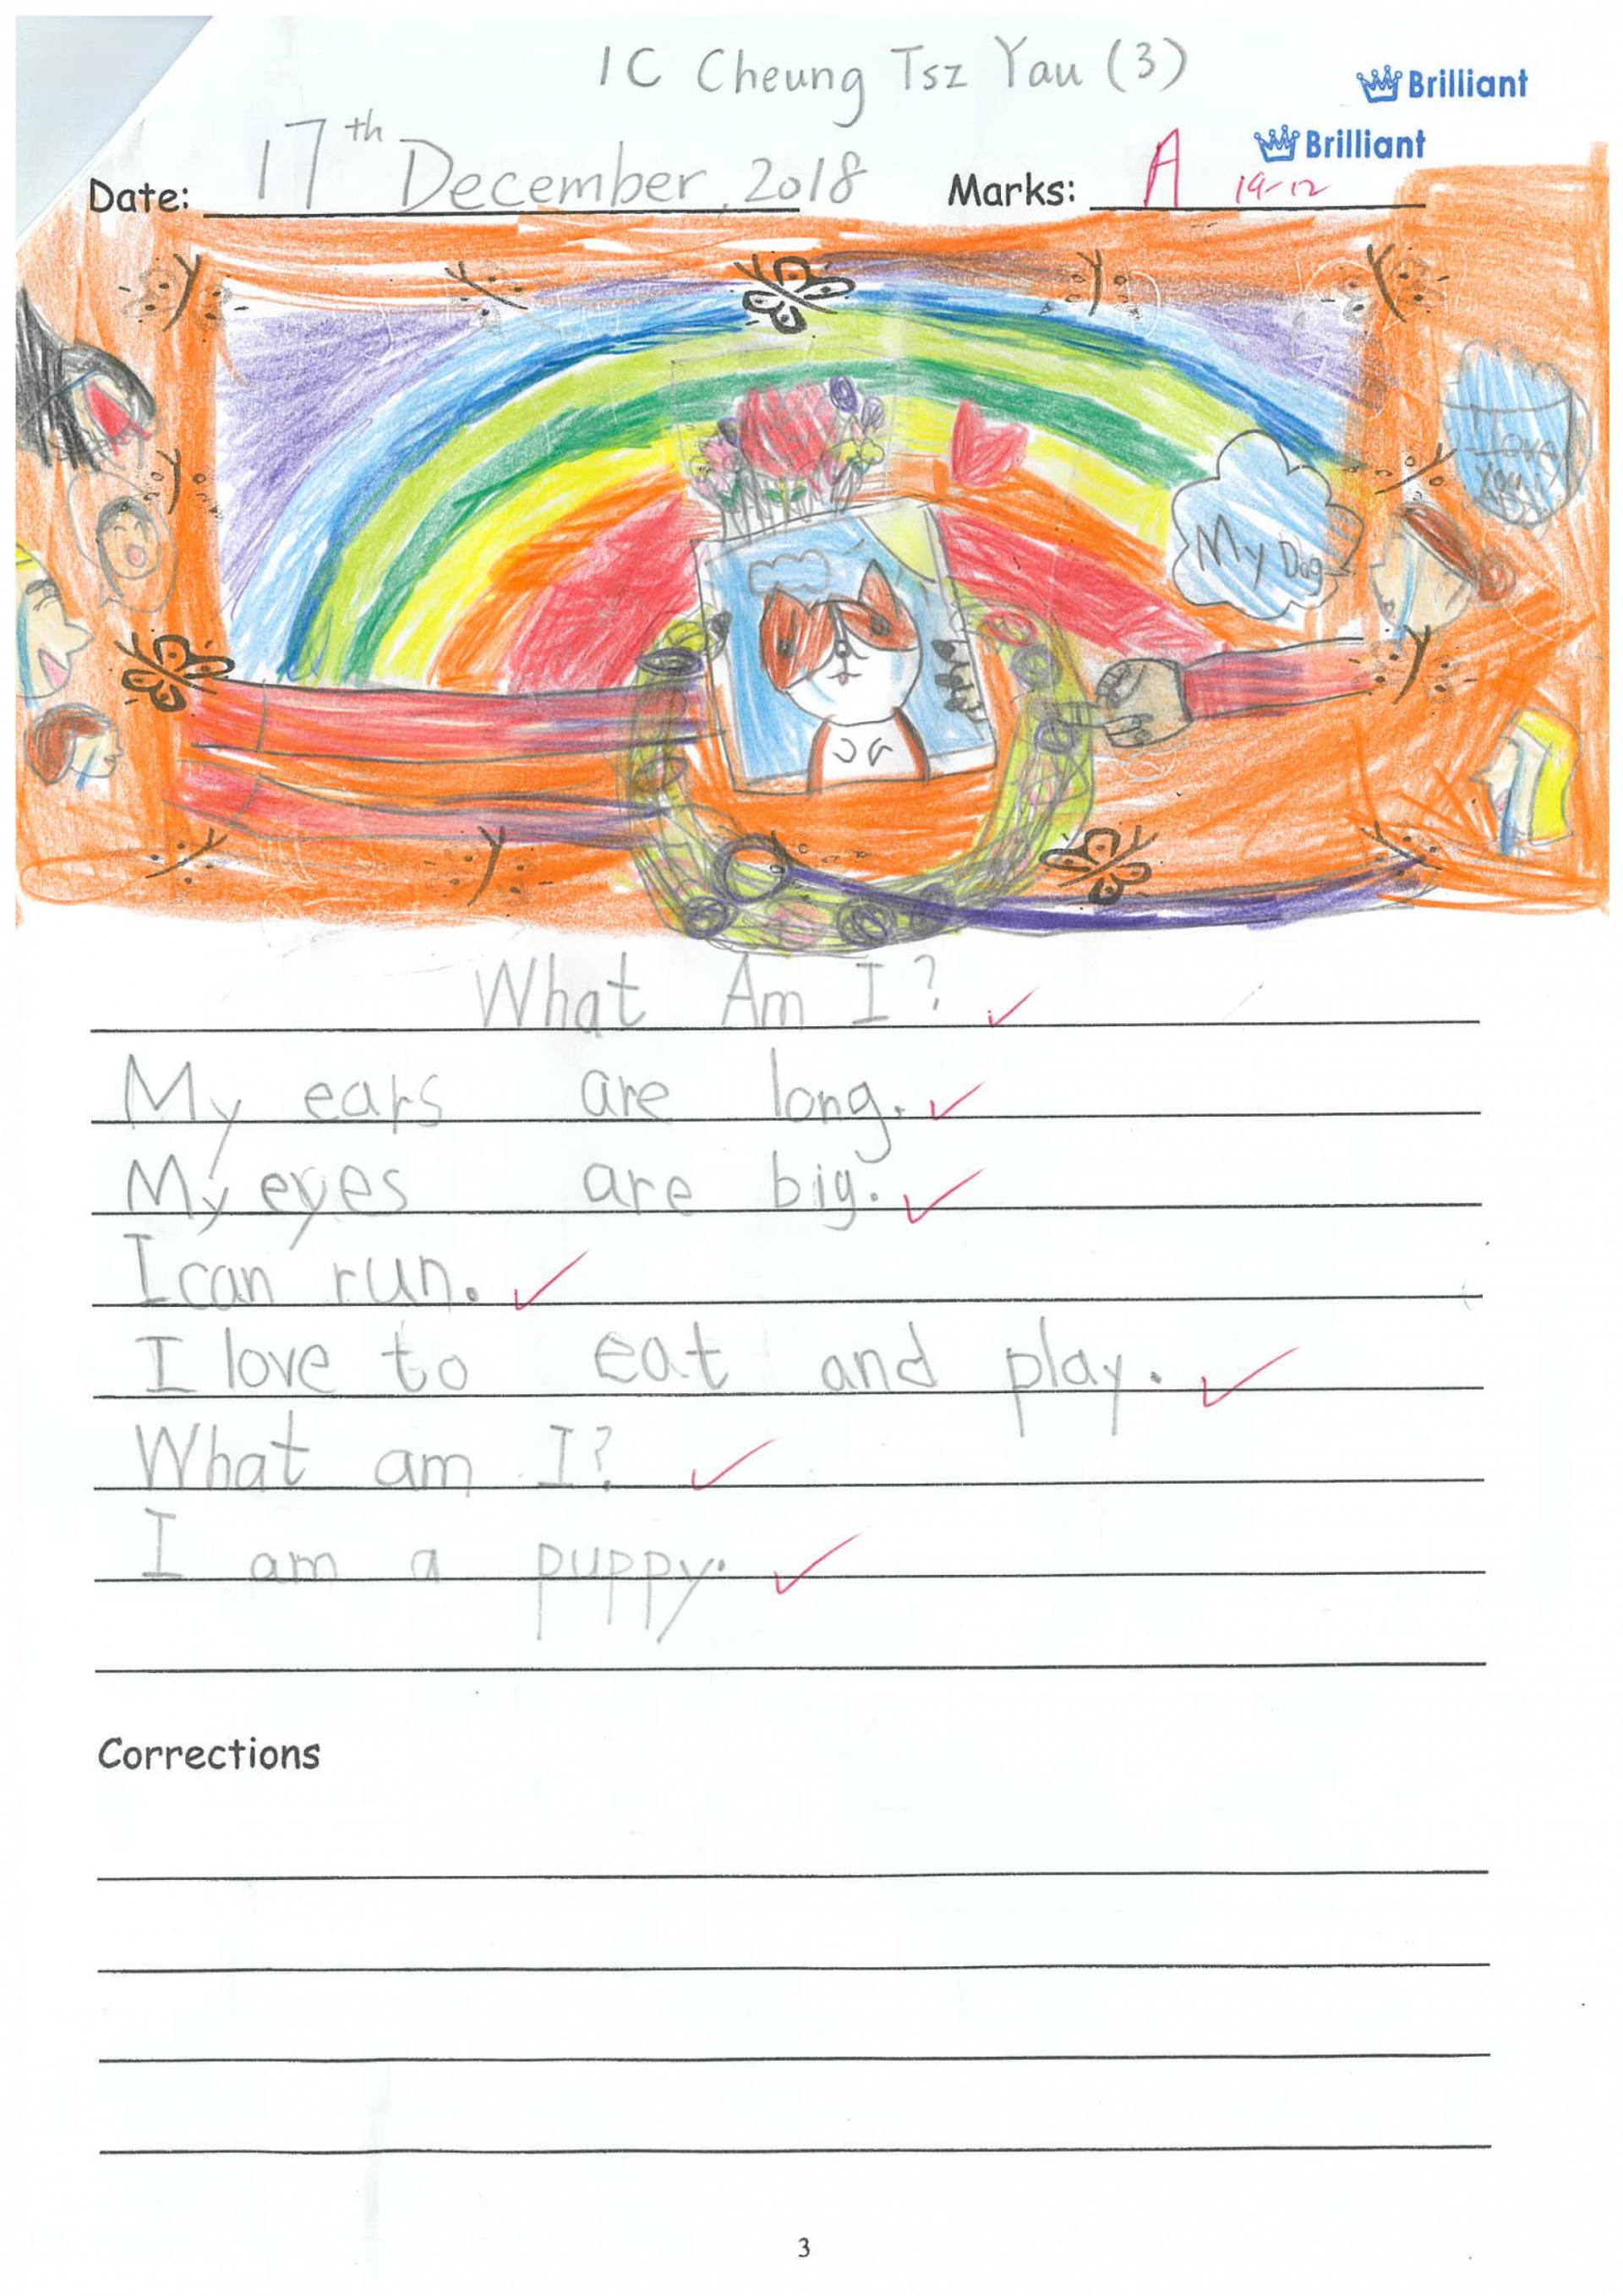 1C Cheung Tsz Yau (3)
Brilliant
Brilliant
Date: 17th December, 2018 Marks: A 19-12
I Love You
My Dog
What Am I?
My ears are long.
My eyes are big.
I can run.
I love to eat and play.
What am I?
I am a puppy.
Corrections
3